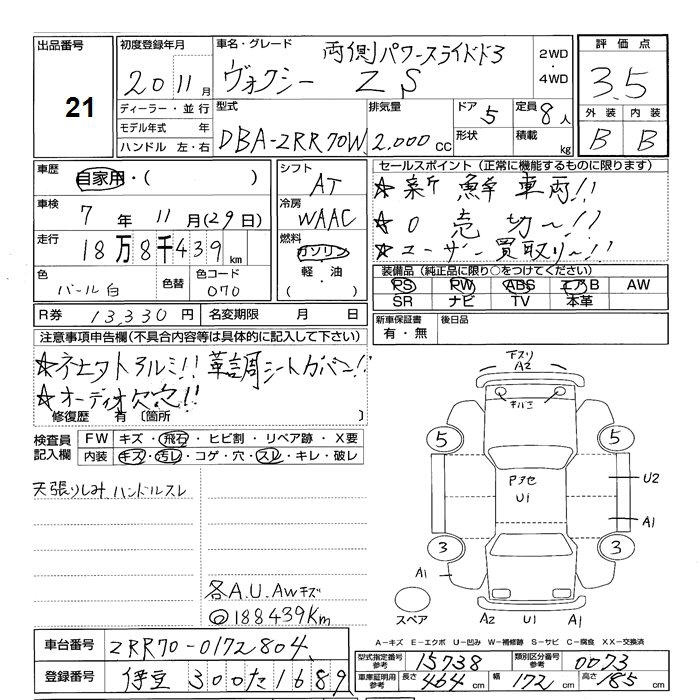 出品番号
21
初度登録年月
20 11月
車名・グレード
両側パワースライドドア
ヴォクシー ZS
2WD
・
4WD
評価点
3.5
外装 内装
B B
ディーラー・並行
モデル年式 年
ハンドル 左・右
型式
DBA-ZRR70W
排気量
2.000cc
ドア 5
形状
定員 8人
積載 kg
車歴
自家用・( )
車検
7年 11月(29日)
走行
18万8千439km
色
パール白
色替
色コード
070
シフト
AT
冷房
WAAC
燃料
ガソリン
軽・油
( )
セールスポイント(正常に機能するものに限ります)
☆新鮮車両!!
☆0売切〜!!
☆ユーザー買取り〜!!
装備品(純正品に限り○をつけてください)
PS PW ABS エアB AW
SR ナビ TV 本革
R券 13,330円
名変期限 月 日
新車保証書
有・無
後日品
注意事項申告欄(不具合内容等は具体的に記入して下さい)
☆社外アルミ!! 革調シートカバー!!
☆オーディオ欠品!!
修復歴 有 〔箇所 〕
検査員
記入欄
FW キズ・飛石・ヒビ割・リペア跡・X要
内装 キズ・汚レ・コゲ・穴・スレ・キレ・破レ
天張りしみ ハンドルスレ
各A.U.AWキズ
◎188439Km
下スリ
A2
キルさ
5 5
Pアセ
U1
U2
A1
3 3
A1
スペア
A2 U1 A1
A-キズ E-エクボ U-凹み W-補修跡 S-サビ C-腐食 XX-交換済
車台番号 ZRR70-0172804
登録番号 伊豆 300 た 1689
型式指定番号
参考
15738
類別区分番号
参考
0073
車庫証明用
参考
長さ 464cm 幅 172cm 高さ 185cm